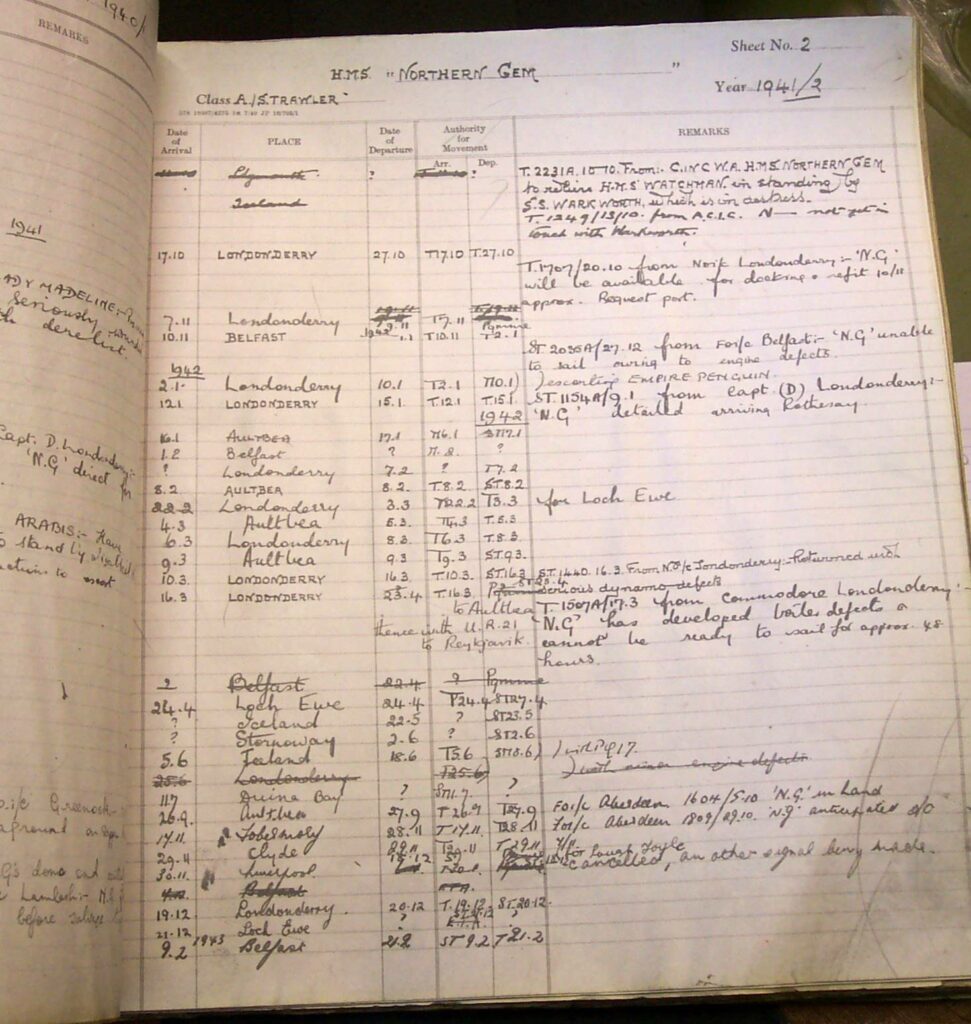 1940/1
REMARKS
1941
ADY MADELINE:-
Seriously
derelict.
Capt. D. Londonderry:-
'N.G' direct for
ARABIS:- Have
to stand by
Greenock
aground
before
Sheet No. 2
H.M.S "NORTHERN GEM"
Class A/S TRAWLER
Year 1941/2
Date of Arrival PLACE Date of Departure Authority for Movement REMARKS
Arr. Dep.
Plymouth ? ? T.2231A.10/10. From:- C. in C W.A. H.M.S. NORTHERN GEM
to relieve H.M.S' WATCHMAN in standing by
Iceland S.S. WARKWORTH, which is in distress.
T.1249/13/10. from A.C.I.C. N— not yet in
touch with Warkworth.
17.10 LONDONDERRY 27.10 T17.10 T.27.10
T.1707/20.10 from Londonderry:- 'N.G'
will be available for docking & refit 10/11
approx. Request port.
7.11 Londonderry 9.11 T7.11
10.11 BELFAST 1942 1.1 T10.11 T2.1
ST 2035A/27.12 from Belfast:- 'N.G' unable
to sail owing to engine defects.
1942
2.1 Londonderry 10.1 T2.1 T10.1) )escorting EMPIRE PENGUIN.
12.1 LONDONDERRY 15.1 T.12.1 T15.1 ST.1154A/9.1 from Capt. (D) Londonderry:-
1942 'N.G' detailed arriving Rothesay.
16.1 AULTBEA 17.1 T16.1 ST17.1
1.2 Belfast ? ?
? Londonderry 7.2 ? T7.2
8.2 AULTBEA 8.2 T.8.2 ST.8.2
22.2 Londonderry 3.3 T22.2 T3.3 for Loch Ewe
4.3 Aultbea 5.3 T4.3 T.5.3
6.3 Londonderry 8.3 T6.3 T.8.3
9.3 Aultbea 9.3 T9.3 ST.9.3
10.3 LONDONDERRY 16.3 T.10.3 ST.16.3 ST.1440.16.3. From Londonderry:- Returned with
16.3 LONDONDERRY 23.4 T.16.3 ST.23.4 serious dynamo defects
to Aultbea T.1507A/17.3 from Commodore Londonderry:-
thence with U.R.21 'N.G' has developed boiler defects &
to Reykjavik. cannot be ready to sail for approx. 48
hours.
? Belfast 22.4 ?
24.4 Loch Ewe 24.4 T24.4 ST27.4
? Iceland 22.5 ? ST23.5
? Stornoway 2.6 ? ST2.6
5.6 Iceland 18.6 T5.6 ) with PQ 17.
25.6 Londonderry T25.6) ) with minor engine defects
11.7 Dvina Bay ? ST11.7. ?
26.9. Aultbea 27.9 T26.9 T27.9 Aberdeen 1604/5.10 'N.G.' in hand
17.11 Tobermory 28.11 T17.11 T28.11 Aberdeen 1809/29.10. 'N.G' anticipated
29.11 Clyde 29.11 T29.11 T.29.11 for Lough Foyle
30.11 Liverpool 18.12 Cancelled, another signal being made.
Belfast
19.12 Londonderry. 20.12 T.19.12 ST.20.12
21.12 Loch Ewe ? ?
9.2 1943 Belfast 21.2 ST 9.2 T21.2